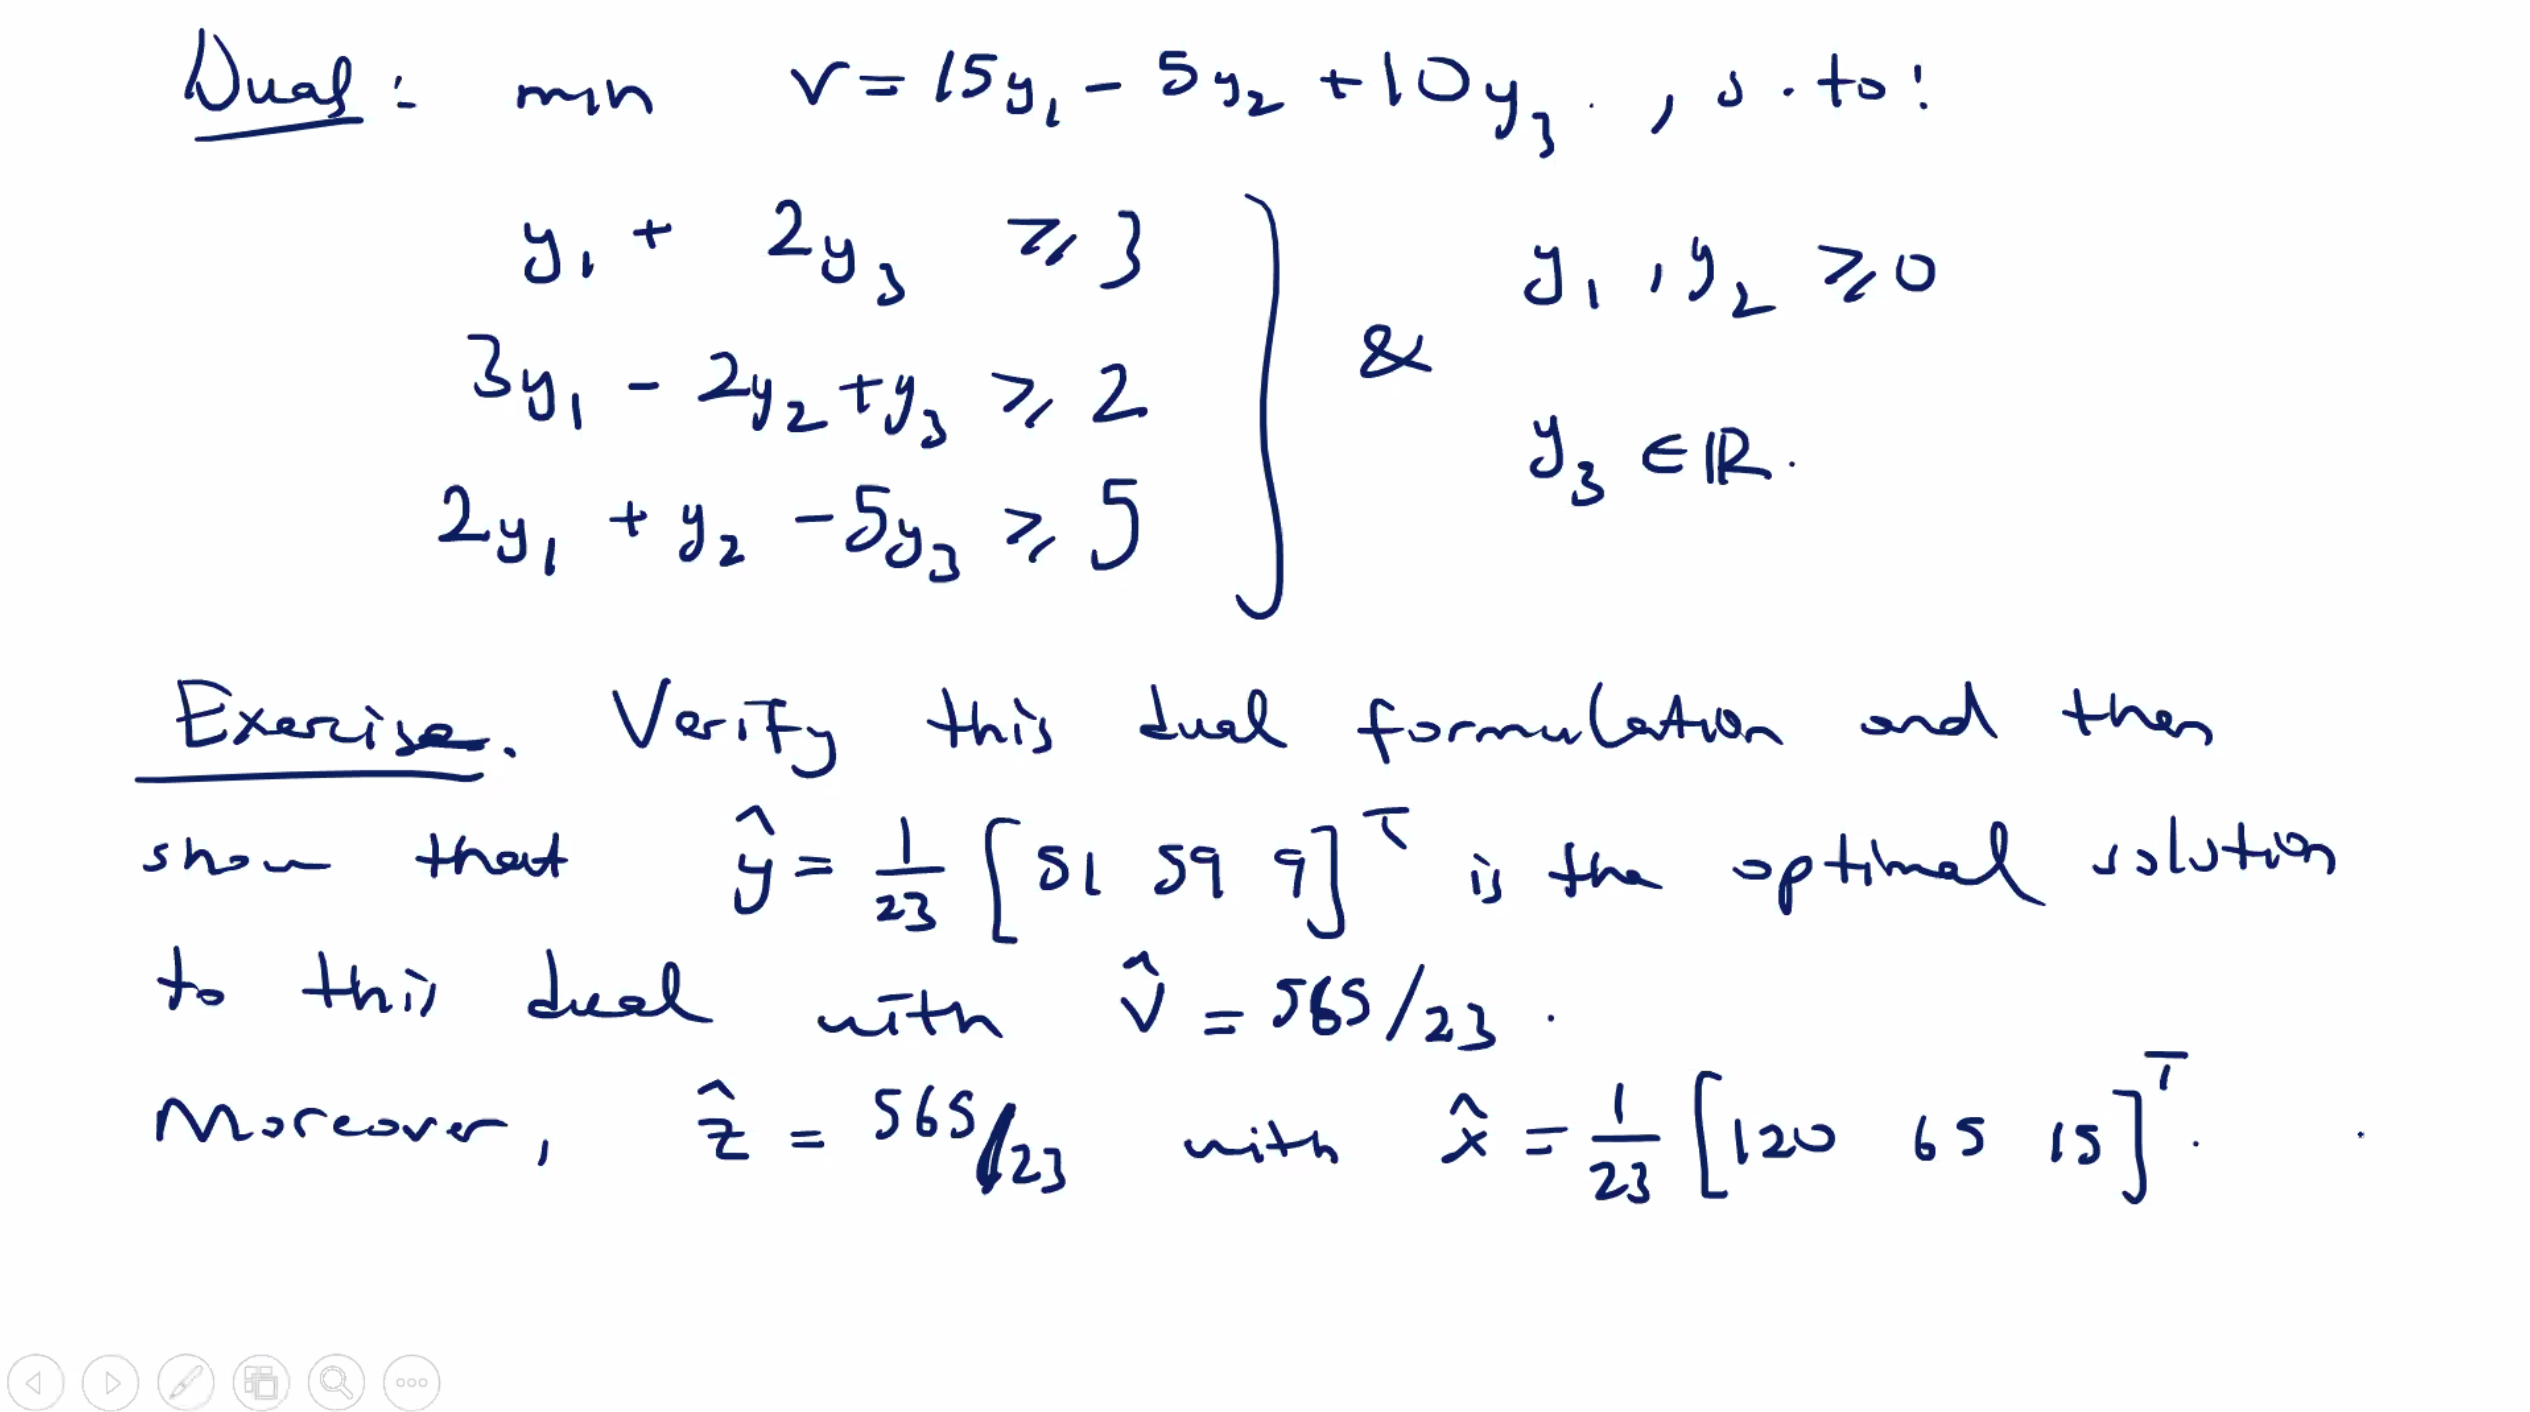 Dual: min v = 15y₁ - 5y₂ + 10y₃ , s.to:
y₁ + 2y₃ ⩾ 3
3y₁ - 2y₂ + y₃ ⩾ 2
2y₁ + y₂ - 5y₃ ⩾ 5
& y₁, y₂ ⩾ 0
y₃ ∈ ℝ.
Exercise. Verify this dual formulation and then
show that ŷ = 1/23 [51 59 9]ᵀ is the optimal solution
to this dual with v̂ = 565/23.
Moreover, ẑ = 565/23 with x̂ = 1/23 [120 65 15]ᵀ.